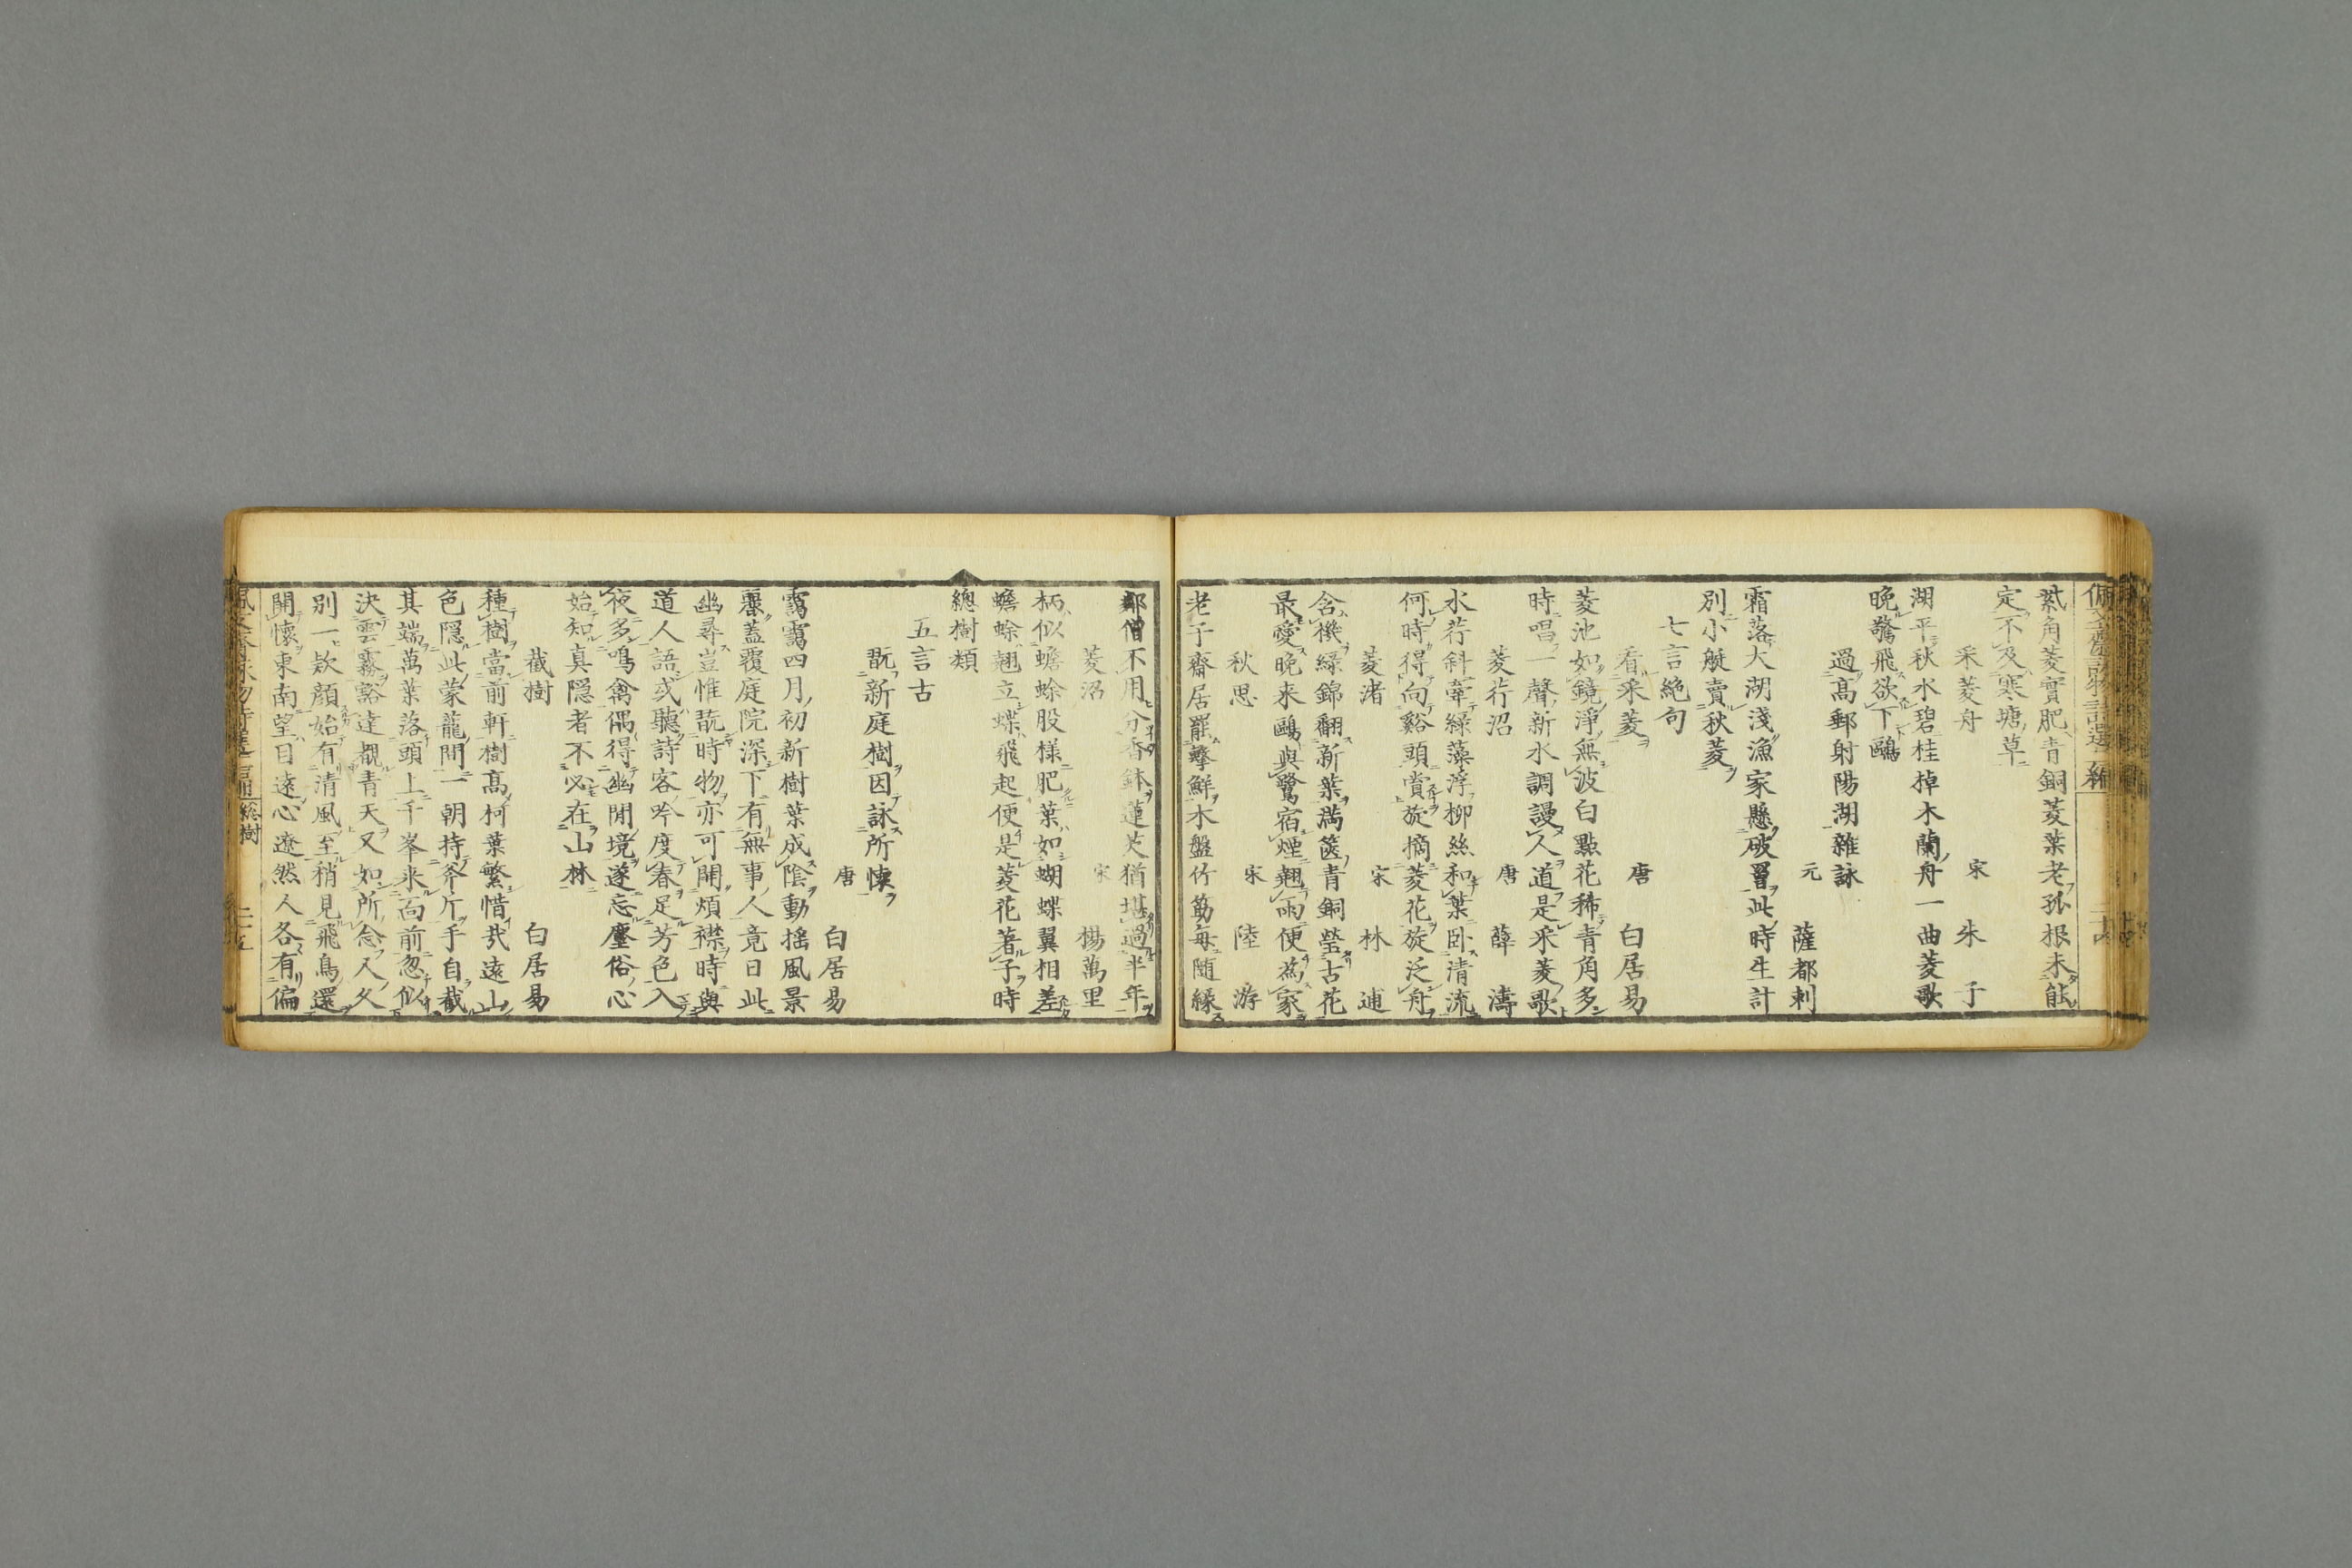 紫角菱實肥青銅菱葉老孤根未能
定不及寒塘草
采菱舟
宋 朱子
湖平秋水碧桂棹木蘭舟一曲菱歌
晚驚飛欲下鷗
過高郵射陽湖雜詠
元 薩都剌
霜落大湖淺漁家懸破罾此時生計
別小艇賣秋菱
七言絶句
看采菱
唐 白居易
菱池如鏡淨無波白點花稀青角多
時唱一聲新水調謾人道是采菱歌
菱荇沼
唐 薛濤
水荇斜牽緑藻浮柳絲和葉卧清流
何時得向谿頭賞旋摘菱花旋泛舟
菱渚
宋 林逋
含機緑錦翻新葉満篋青銅瑩古花
最愛晚来鷗與鷺宿煙翹雨便為家
秋思
宋 陸游
老子齋居罷擊鮮木盤竹筯毎随縁
鄰僧不用分香鉢蓮芡猶堪過半年
菱沼
宋 楊萬里
柄似蟾蜍股様肥葉如蝴蝶翼相差
蟾蜍翹立蝶飛起便是菱花著子時
總樹類
五言古
翫新庭樹因詠所懐
唐 白居易
靄靄四月初新樹葉成陰動揺風景
麗蓋覆庭院深下有無事人竟日此
幽尋豈惟翫時物亦可開煩襟時與
道人語或聽詩客吟度春足芳色入
夜多鳴禽偶得幽閒境遂忘塵俗心
始知真隠者不必在山林
截樹
白居易
種樹當前軒樹高柯葉繁惜哉遠山
色隠此蒙蘢間一朝持斧斤手自截
其端萬葉落頭上千峯来面前忽似
決雲霧豁達覩青天又如所念人久
別一欵顔始有清風至稍見飛鳥還
開懷東南望目遠心遼然人各有偏
總樹